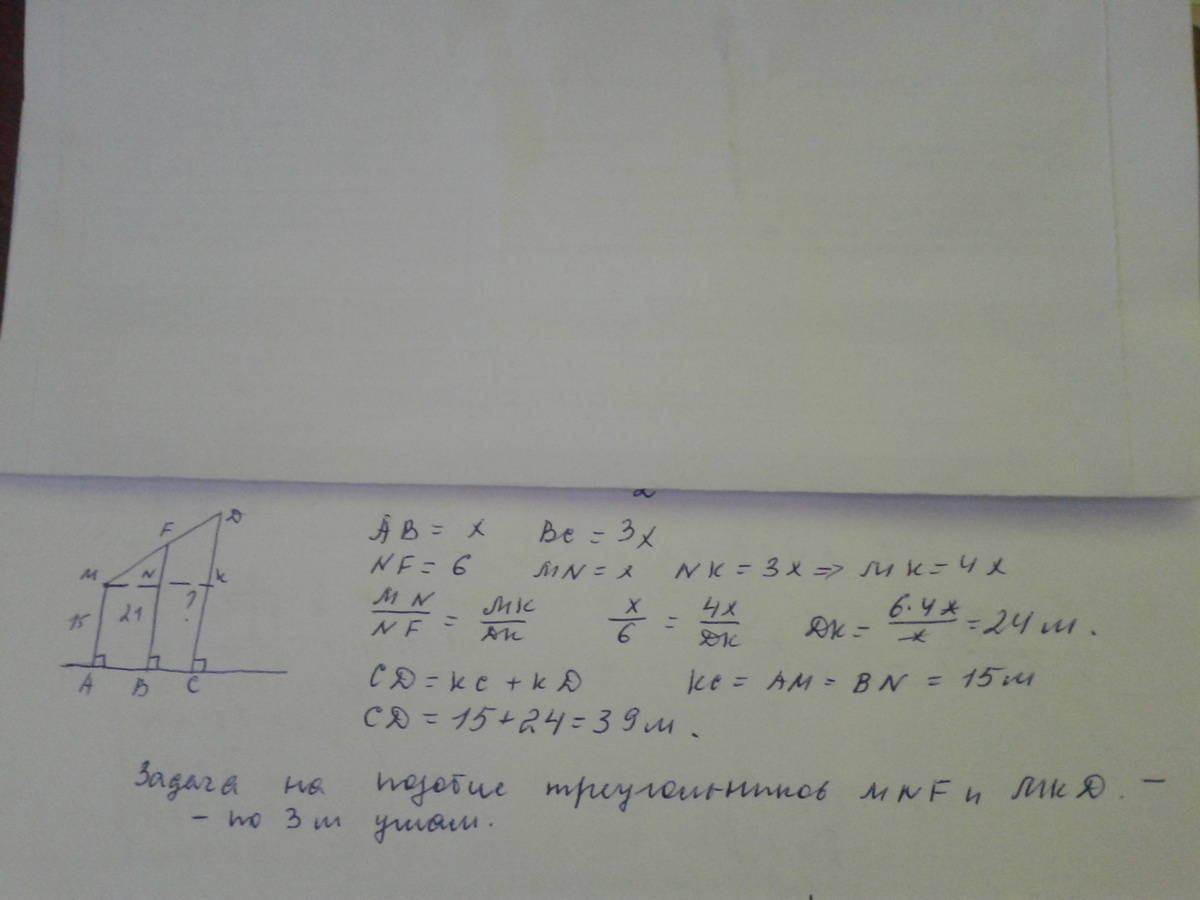 AB = x BC = 3x
NF = 6 MN = x NK = 3x => MK = 4x
MN/NF = MK/DK x/6 = 4x/DK DK = 6·4x/x = 24 м.
CD = KC + KD KC = AM = BN = 15 м
CD = 15 + 24 = 39 м.
D
F
M N K
15 21 ?
A B C
Задача на подобие треугольников MNF и MKD. –
– по 3м углам.